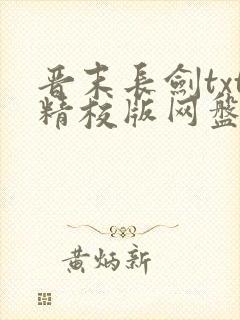 晋末长剑txt
精校版网盘
黄炳新